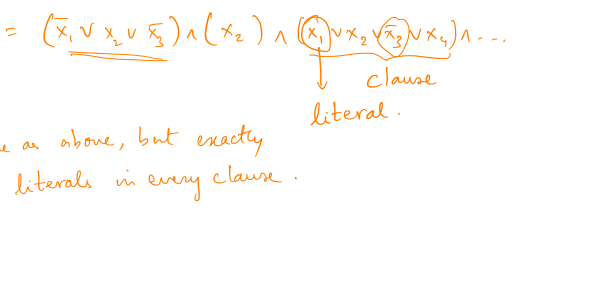 = (x̄₁ ∨ x₂ ∨ x̄₃) ∧ (x₂) ∧ (x₁ ∨ x₂ ∨ x̄₃ ∨ x₄) ∧ ...
clause
literal.
as above, but exactly
literals in every clause.